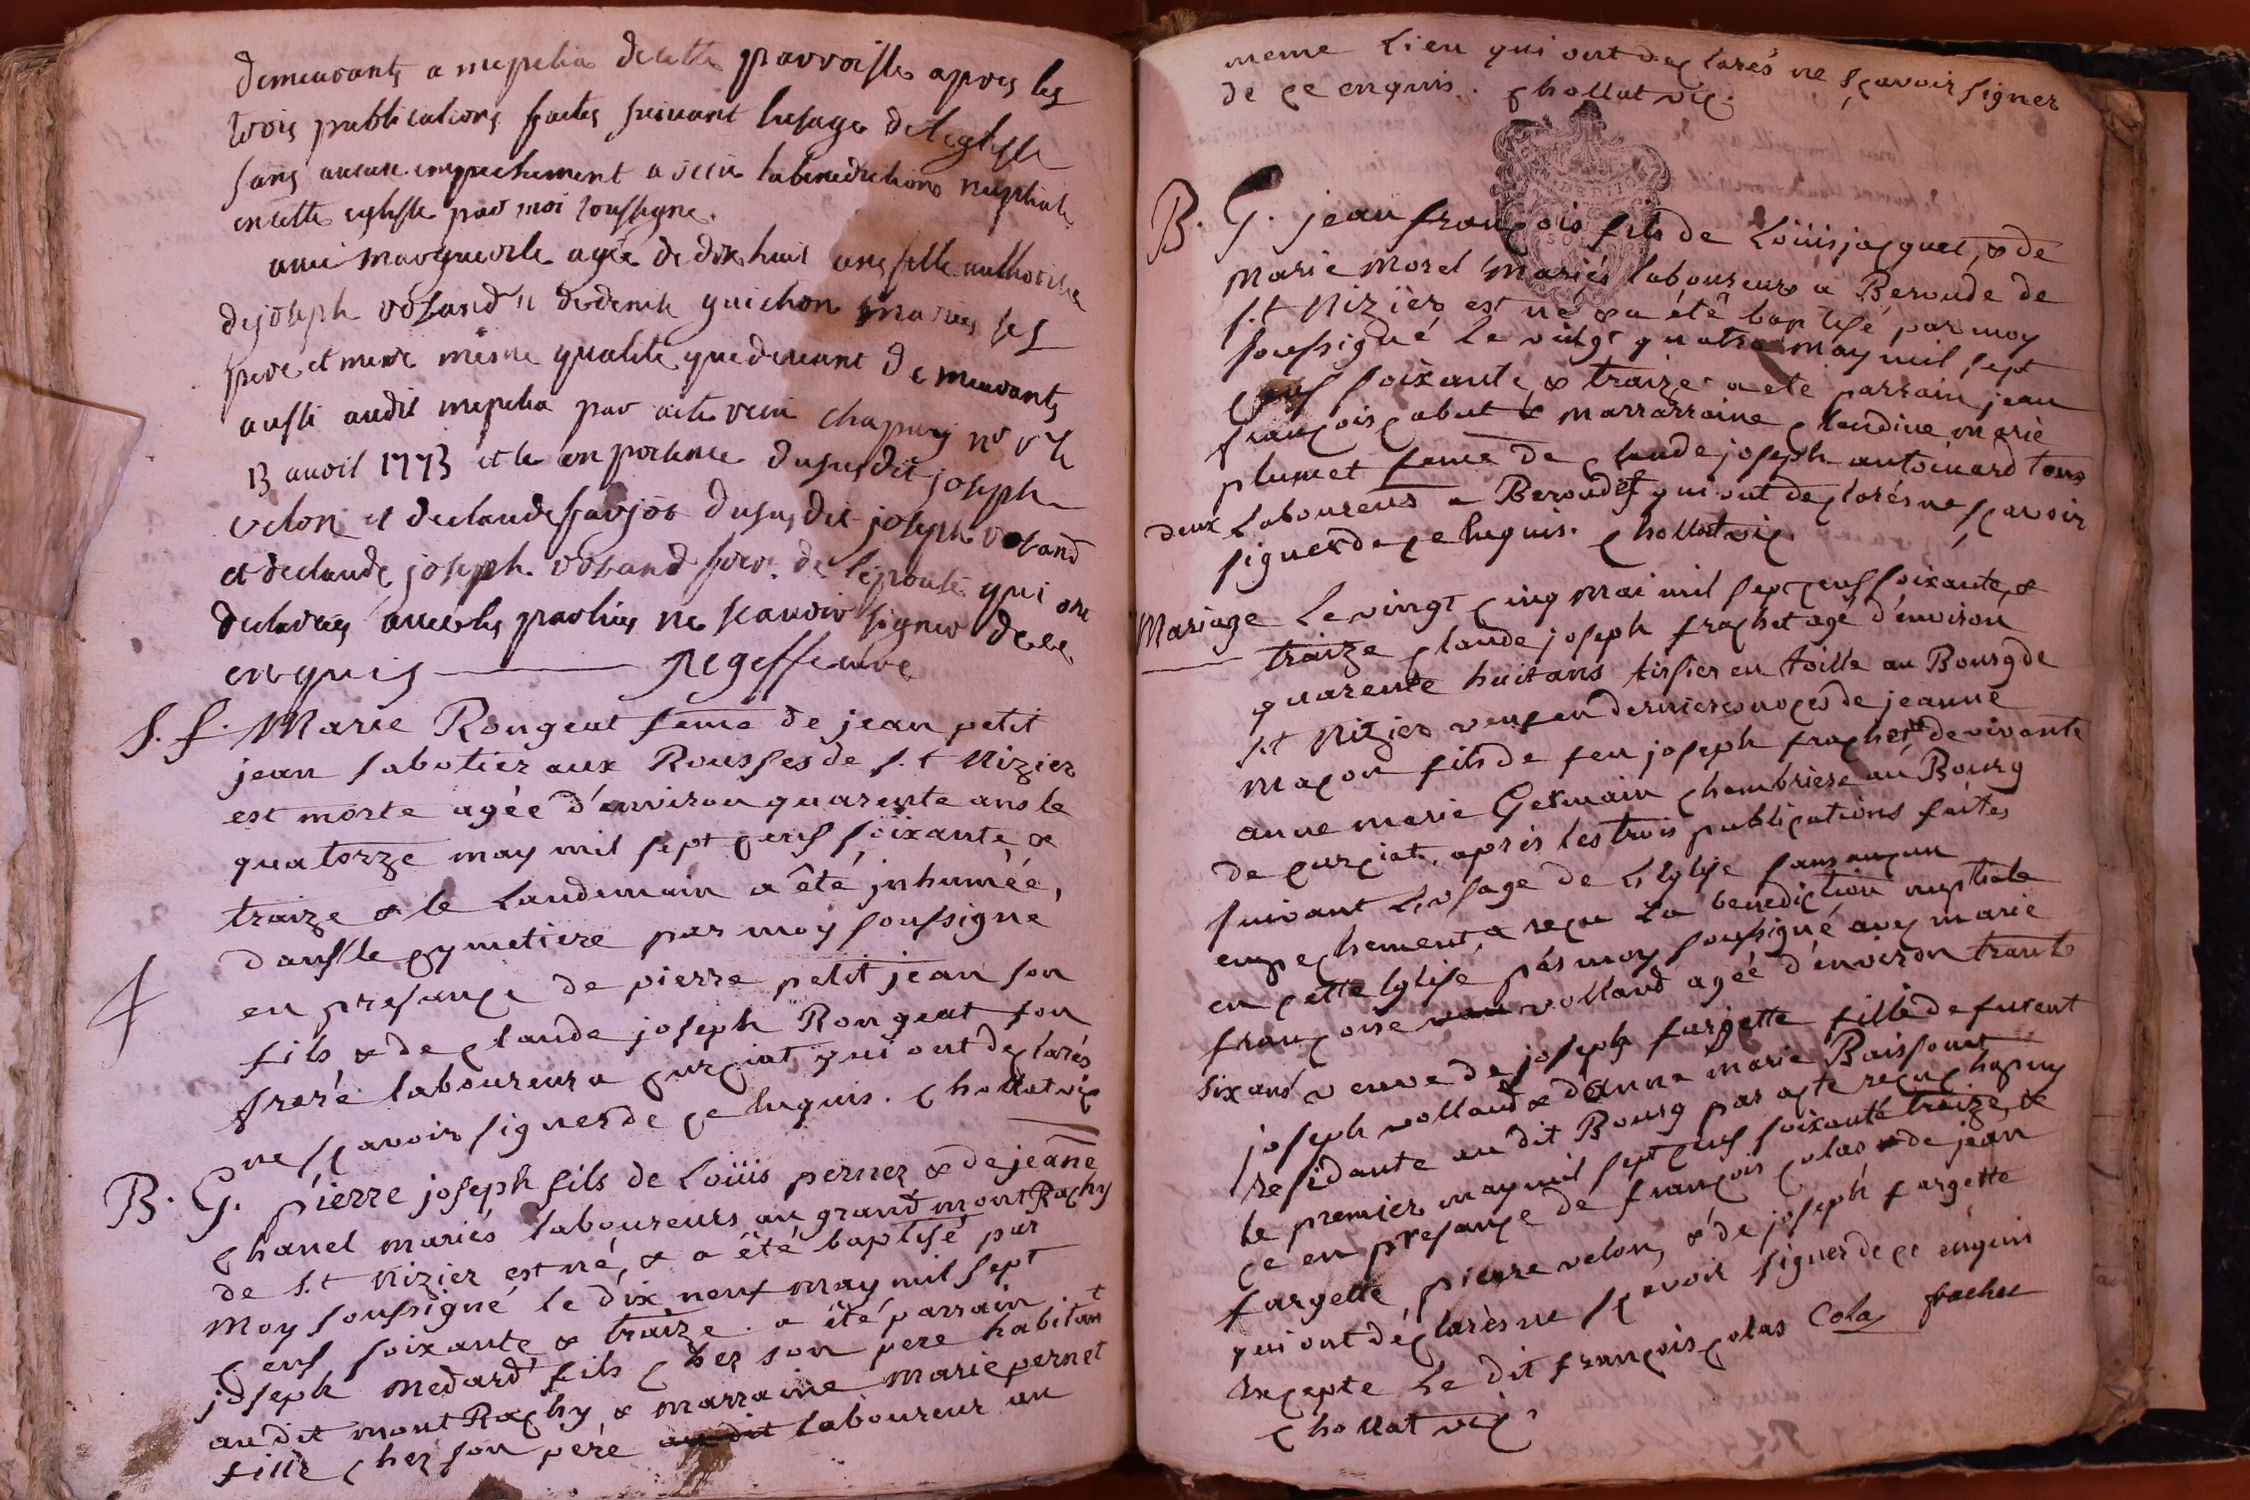 demeurants a mepilia de cette parroisse apres les
trois publications faites suivant lusage de leglise
sans aucun empechement a recu la benediction nuptiale
en cette eglise par moi soussigne.
avec marguerite agée de dix huit ans fille authorisée
de joseph voland et de denise guichon mariés ses
pere et mere mesme qualite que devant demeurants
aussi audit mepilia par acte recu chapuis nre r le
13 avril 1773 et ce en presence du susdit joseph
velon et de claude favjot du susdit joseph voland
et de claude joseph voland frere de lepouse qui ont
declarés avec les parties ne scavoir signer de ce
enquis Regeffeuvre
S. f. Marie Rongeat feme de jean petit
jean sabotier aux Rousses de S.t Nizier
est morte agée d'environ quarente ans le
quatorze may mil sept çens soixante &
traize & le Landemain a été jnhumée,
dans le çymetiere par moy soussigné
en presançe de pierre petit jean son
fils & de çlaude joseph Rongeat son
frere laboureur a çurçiat qui ont deçlarés
ne sçavoir signer de çe Enquis. çhollat viç
B. G. pierre joseph fils de Loüis pernez & de jeane
çhanel mariés laboureurs au grand mont Raçhy
de S.t Nizier est né, & a été baptisé par
moy soussigné le dix neuf may mil sept
çens soixante & traize. a été parrain
joseph medard fils çhez son pere habitant
au dit mont Raçhy & marraine marie pernet
fille çhez son pere laboureur au
meme Lieu qui ont deçlarés ne sçavoir signer
de çe enquis. çhollat viç.
B. G. jean françois fils de Loüis jaçquet, & de
Marie Morel Mariés laboureurs a Beroude de
S.t Nizier est né & a été baptisé par moy
soussigné Le vingt quatre may mil sept
çens soixante & traize a été parrain jean
françois çabut & marrarraine çlaudine marie
plumet feme de çlaude joseph antoinard tous
deux Laboureurs a Beroudet qui ont deçlarés ne sçavoir
signer de çe Enquis. çhollat viç.
Mariage Le vingt çinq Mai mil sept çens soixante &
traize çlaude joseph fraçhet agé d'environ
quarente huit ans tissier en toille au Bourg de
S.t Nizier veuf en dernieres noçes de jeanne
Maçon fils de feu joseph fraçhet & de vivante
anne marie Germain çhambriere au Bourg
de çurçiat, après les trois publiçations faites
suivant L'usage de L'Eglise sans auçun
empeçhement, a reçu La benediçtion nuptiale
en çette Eglise par moy soussigné aveç marie
françoise volland agée d'environ trante
six ans veuve de joseph fargette fille defurent
joseph volland & d'anne marie Boissonet
residante au dit Bourg par açte reçu çhapuy
le premier may mil sept çens soixante traize, &
çe en presançe de françois çolas & de jean
fargette pierre velon, & de joseph fargette
qui ont déçlarès ne sçavoir signer de çe enquis
Exçepte Le dit françois çolas Colas frachet
çhollat viç.